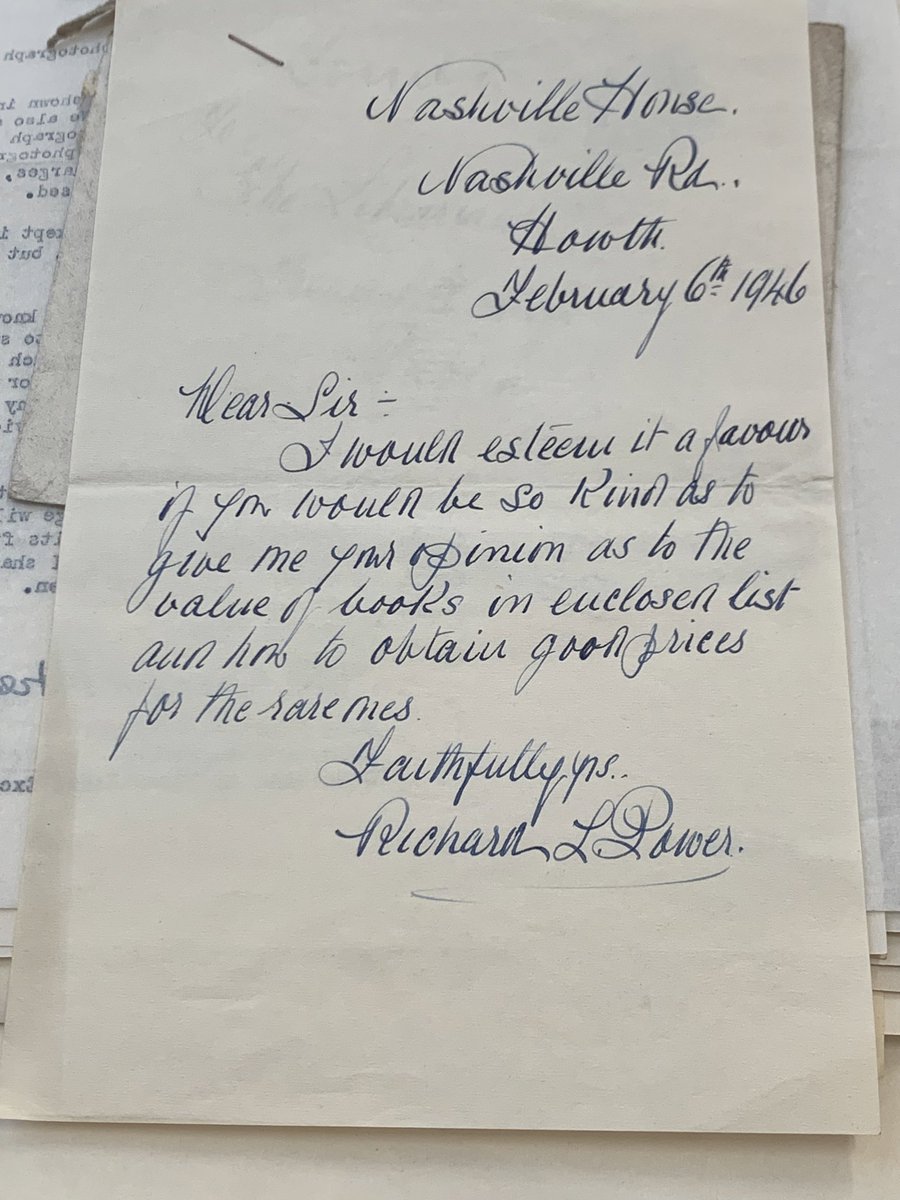 Nashville House.
Nashville Rd.
Howth.
February 6th 1946
Dear Sir :-
I would esteem it a favour
if you would be so kind as to
give me your opinion as to the
value of books in enclosed list
and how to obtain good prices
for the rare ones.
Faithfully yrs.
Richard L. Power.